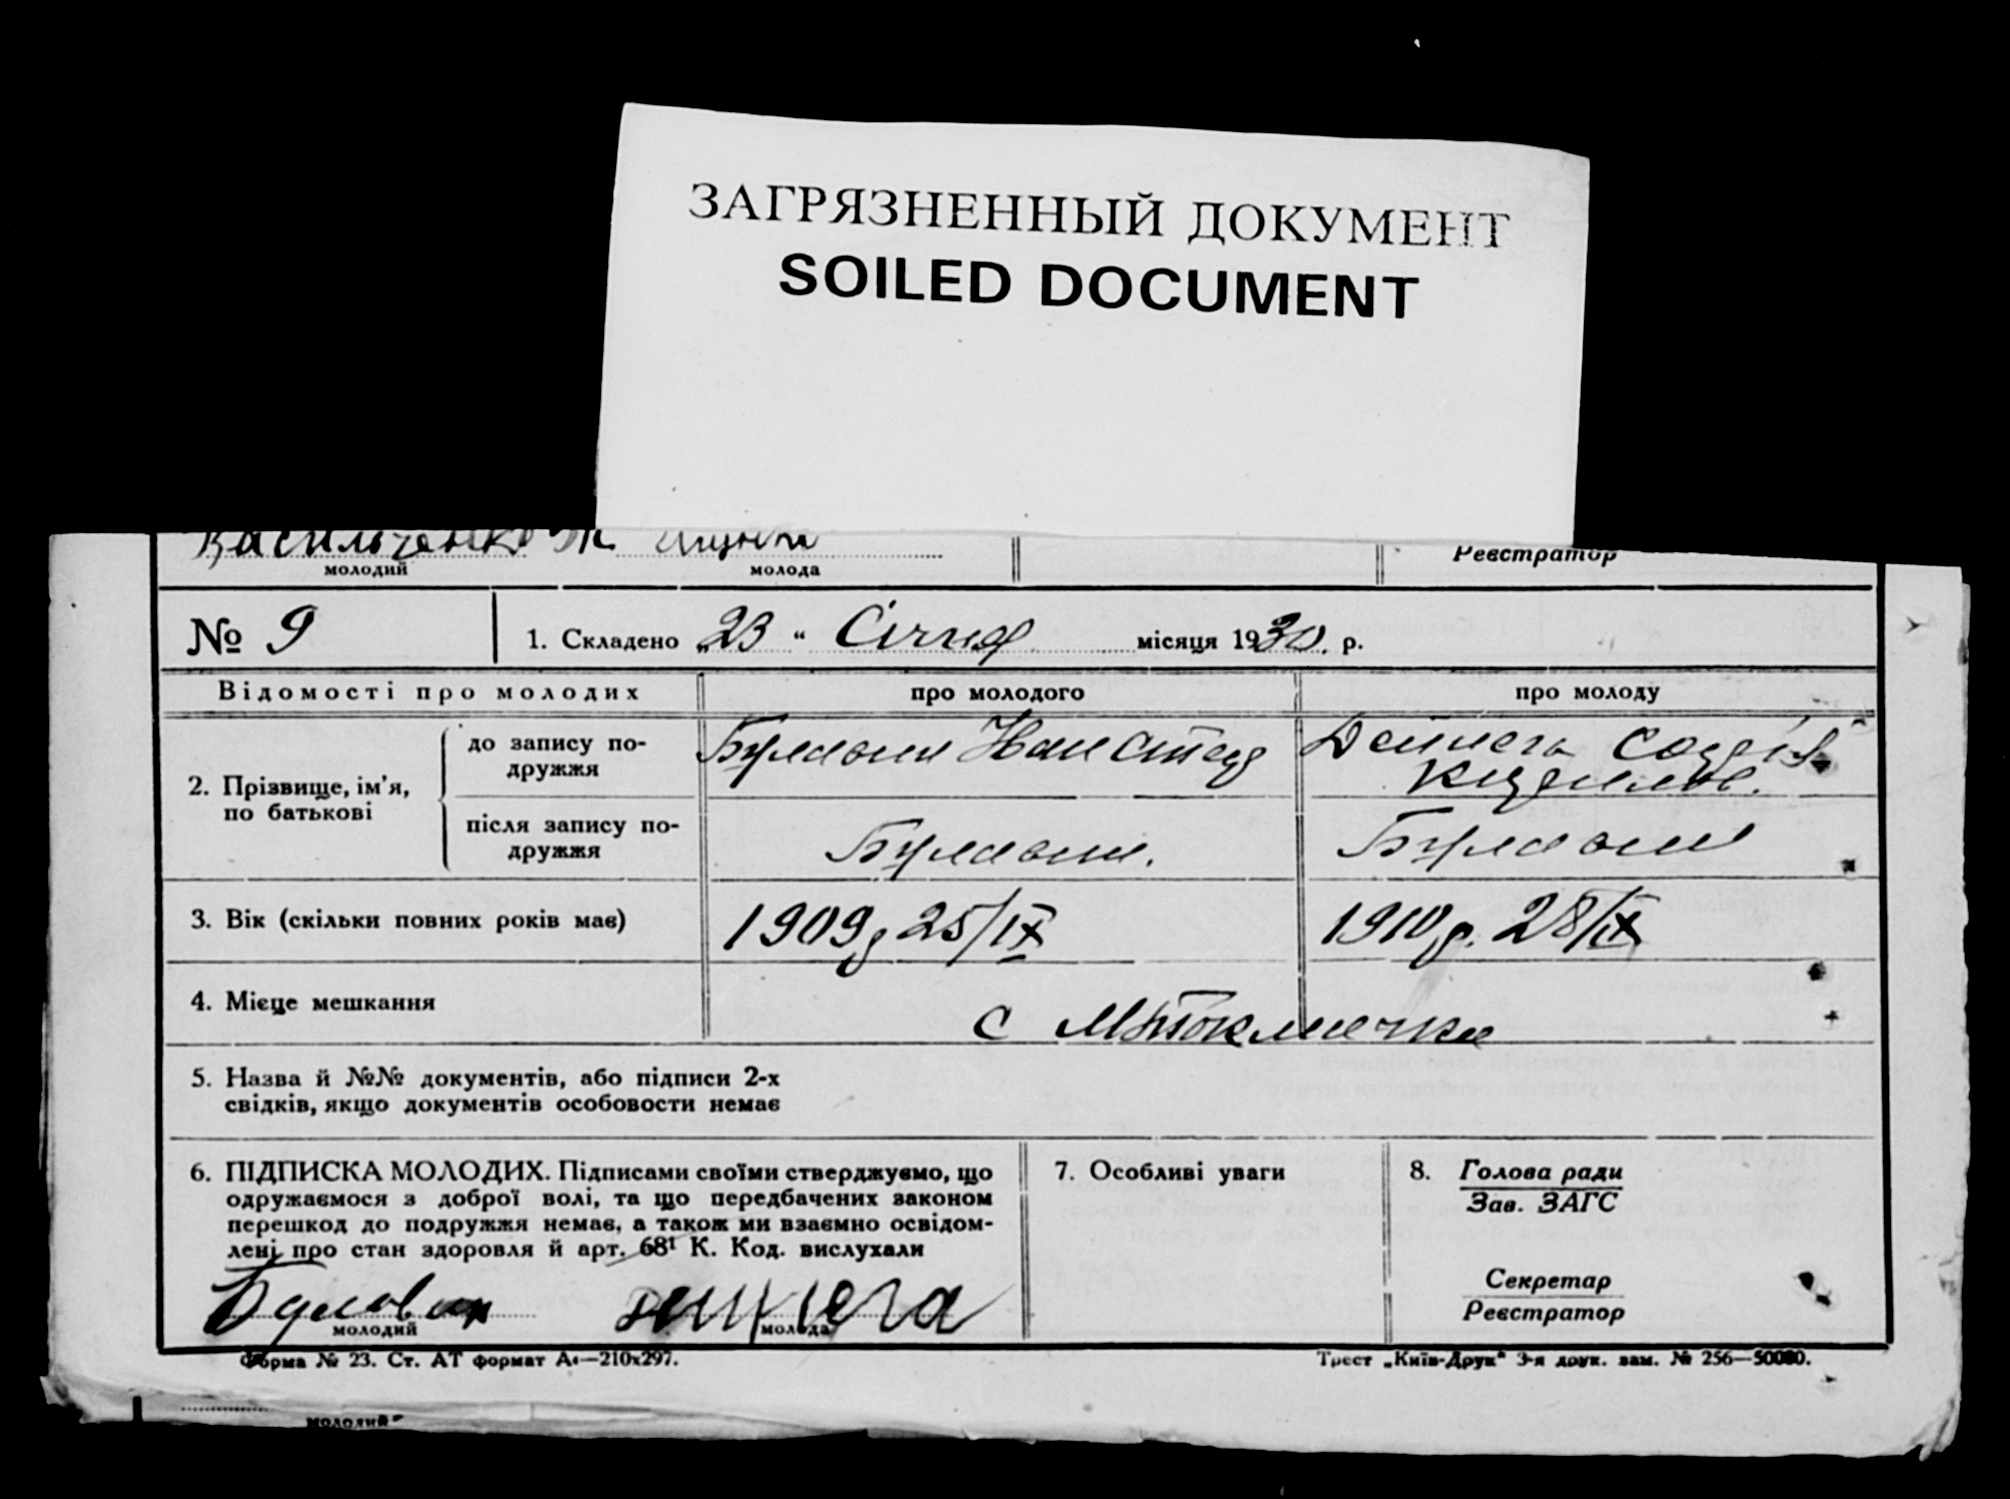 ЗАГРЯЗНЕННЫЙ ДОКУМЕНТ
SOILED DOCUMENT
Васильченко
молодий
молода
Реєстратор
№ 9
1. Складено „23“ Січня місяця 1930 р.
Відомості про молодих
про молодого
про молоду
2. Прізвище, ім'я, по батькові
до запису по-
дружжя
після запису по-
дружжя
3. Вік (скільки повних років має)
1909 р 25/IX
1910 р. 28/IX
4. Місце мешкання
с М Токмачка
5. Назва й №№ документів, або підписи 2-х
свідків, якщо документів особовости немає
6. ПІДПИСКА МОЛОДИХ. Підписами своїми стверджуємо, що
одружаємося з доброї волі, та що передбачених законом
перешкод до подружжя немає, а також ми взаємно освідом-
лені про стан здоров'я й арт. 68¹ К. Код. вислухали
молодий
молода
7. Особливі уваги
8. Голова ради
Зав. ЗАГС
Секретар
Реєстратор
Форма № 23. Ст. АТ формат А4—210х297.
Трест „Київ-Друк“ 3-я друк. зам. № 256—50000.
молодий